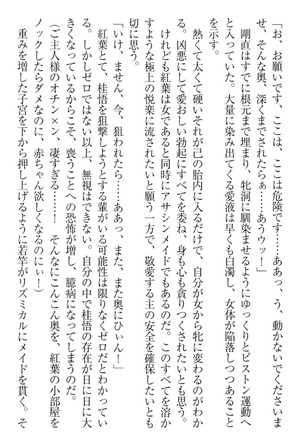 「お、お願いです、ここは、ここは危険ですから……ああっ、う、動かないでくだ
させ、そんな奥、深くまでされたらぁ……あうウッ――！」
剛直はすでに根元まで埋まり、牝洞に馴染ませるようにゆっくりとピストン運動へ
と入っていた。大量に染み出てくる愛液は早くも白濁し、女体が陥落しつつあること
を伝えている。
熱くて太くて硬いそれが己の胎内に入るだけで、自分が女から牝に変わるのがわか
る。凶悪にして愛おしい勃起にすべてを委ね、身も心も貪りつくされたいとも思う。
けれども紅葉は女であると同時にアサシンメイドでもあるのだ。このすべてを溶か
すような極上の悦楽に流されたいと願う一方で、敬愛する主の安全を確保したいとも
切に思う。
「いけ、ません、今、狙われたら……ああっ、また、また奥にひぃん！」
紅葉とて、桂悟を狙撃しようとする輩がいる可能性は限りなくゼロだとわかってい
る。しかしゼロではない以上、無視はできない。自分の中で桂悟の存在が日に日に大
きくなっているからこそ、喪うことへの恐怖が増し、臆病になってしまうのだ。
（ご主人様のオチン×ン、凄すぎる……！　そんなにこんこん奥を、紅葉の小部屋を
ノックしたらダメなのに、赤ちゃん欲しくなるのにぃ！）
重みを増した子宮を下から押し上げるように若竿がリズミカルにメイドを貫く。そ